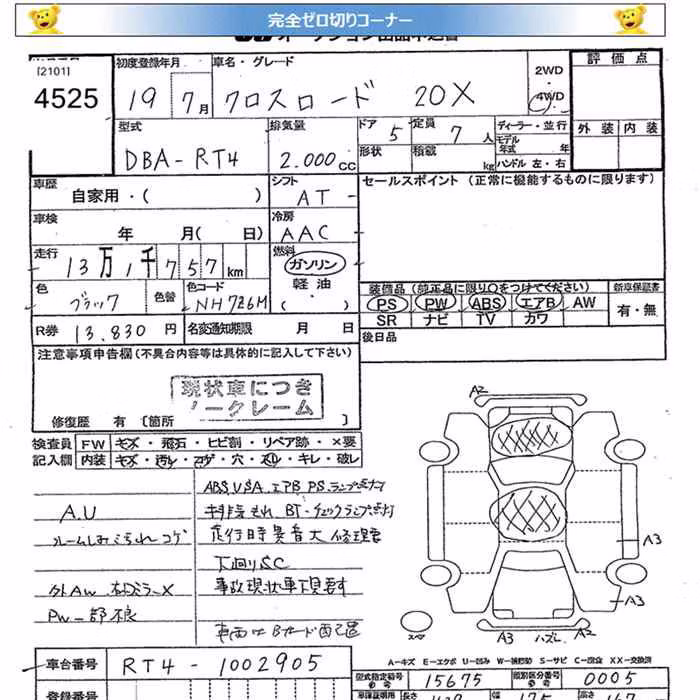 完全ゼロ切りコーナー
[2101]
4525
初度登録年月
19 7月
車名・グレード
クロスロード 20X
2WD
・
4WD
評価点
外装 内装
型式
DBA-RT4
排気量
2.000cc
ドア 5
定員 7人
形状
積載 kg
ディーラー・並行
モデル年式 年
ハンドル 左・右
車歴
自家用・( )
シフト
AT
セールスポイント (正常に機能するものに限ります)
車検
年 月( 日)
冷房
AAC
走行
13万1千757km
燃料
ガソリン
軽油
( ・ )
色
ブラック
色替
色コード
NH726M
装備品 (純正品に限り○をつけてください)
新車保証書
PS PW ABS エアB AW
有・無
SR ナビ TV カワ
R券 13.830円
名変通知期限 月 日
後日品
注意事項申告欄(不具合内容等は具体的に記入して下さい)
現状車につき
ノークレーム
修復歴 有 [箇所 ]
検査員
記入欄
FW キズ・飛石・ヒビ割・リペア跡・×要
内装 キズ・汚れ・コゲ・穴・スレ・キレ・破レ
ABS VSA エアB PS ランプ点灯
A.U
下廻りSC
PW一部不良
車台番号
RT4-1002905
登録番号
A2
A3
A3
A3
A2
スペア
A-キズ E-エクボ U-凹み W-補修跡 S-サビ C-腐食 XX-交換済
型式指定番号 15675
類別区分番号 0005